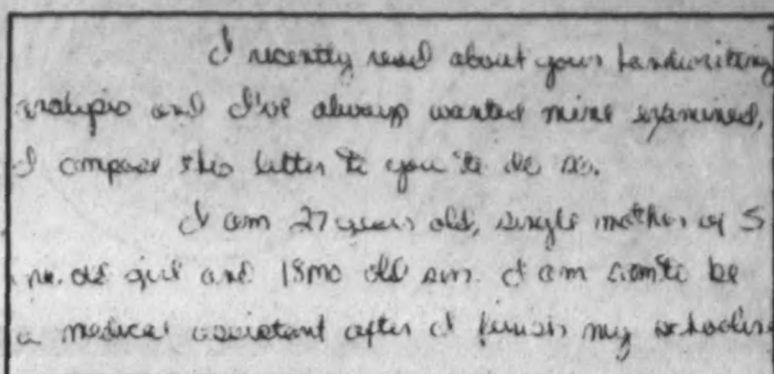 I recently read about your handwriting
analysis and I've always wanted mine examined,
I compose this letter to you to do so.
I am 27 years old, single mother of 5
old girl and 18mo old son. I am to be
a medical assistant after I finish my schooling